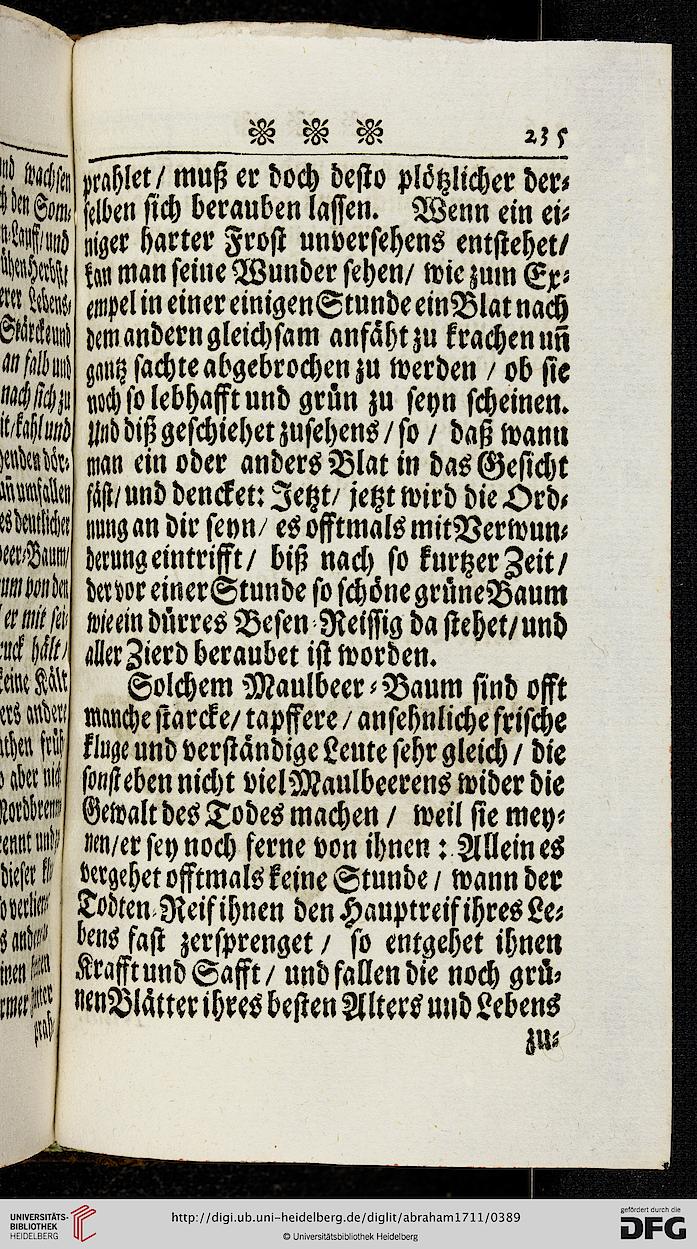 235
prahlet / muß er doch desto plötzlicher der⸗
selben sich berauben lassen. Wenn ein ei⸗
niger harter Frost unversehens entstehet/
kan man seine Wunder sehen/ wie zum Ex⸗
empel in einer einigen Stunde ein Blat nach
dem andern gleichsam anfäht zu krachen un̄
gantz sachte abgebrochen zu werden / ob sie
noch so lebhafft und grün zu seyn scheinen.
Und diß geschiehet zusehens / so / daß wann
man ein oder anders Blat in das Gesicht
fäst/ und dencket: Jetzt/ jetzt wird die Ord⸗
nung an dir seyn/ es offtmals mit Verwun⸗
derung eintrifft / biß nach so kurtzer Zeit /
der vor einer Stunde so schöne grüne Baum
wie ein dürres Besen⸗Reissig da stehet/ und
aller Zierd beraubet ist worden.
Solchem Maulbeer⸗Baum sind offt
manche starcke/ tapffere / ansehnliche frische
kluge und verständige Leute sehr gleich / die
sonst eben nicht viel Maulbeerens wider die
Gewalt des Todes machen / weil sie mey⸗
nen/ er sey noch ferne von ihnen : Allein es
vergehet offtmals keine Stunde / wann der
Todten⸗Reif ihnen den Hauptreif ihres Le⸗
bens fast zersprenget / so entgehet ihnen
Krafft und Safft / und fallen die noch grü⸗
nen Blätter ihres besten Alters und Lebens
zu⸗
nd wachsen
den Som⸗
Lauff/ und
Herbst
Lebens⸗
Stärcke und
an falb und
nach sich zu
it/ kahl und
un̄ umfallen
es deutlicher
beer⸗Baum/
um von den
er mit sei⸗
ruck hält /
keine Kält
ers ander
then früh
aber nich
ennt und
dieser
prah⸗
UNIVERSITÄTS-
BIBLIOTHEK
HEIDELBERG
http://digi.ub.uni-heidelberg.de/diglit/abraham1711/0389
© Universitätsbibliothek Heidelberg
gefördert durch die
DFG